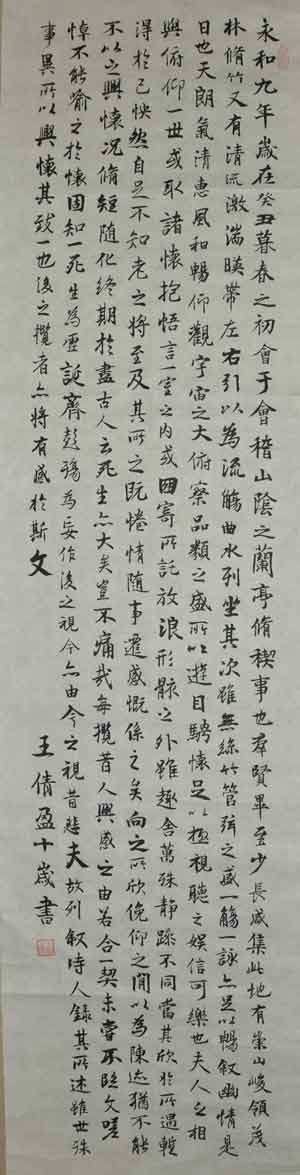 永和九年歲在癸丑暮春之初會于會稽山陰之蘭亭脩禊事也羣賢畢至少長咸集此地有崇山峻領茂
林脩竹又有清流激湍暎帶左右引以為流觴曲水列坐其次雖無絲竹管弦之盛一觴一詠亦足以暢叙幽情是
日也天朗氣清惠風和暢仰觀宇宙之大俯察品類之盛所以遊目騁懷足以極視聽之娛信可樂也夫人之相
與俯仰一世或取諸懷抱悟言一室之內或因寄所託放浪形骸之外雖趣舍萬殊靜躁不同當其欣於所遇暫
得於己怏然自足不知老之將至及其所之既惓情隨事遷感慨係之矣向之所欣俛仰之閒以為陳迹猶不能
不以之興懷况脩短隨化終期於盡古人云死生亦大矣豈不痛哉每攬昔人興感之由若合一契未嘗不臨文嗟
悼不能喻之於懷固知一死生為虛誕齊彭殤為妄作後之視今亦由今之視昔悲夫故列叙時人錄其所述雖世殊
事異所以興懷其致一也後之攬者亦將有感於斯文
王倩盈十歲書